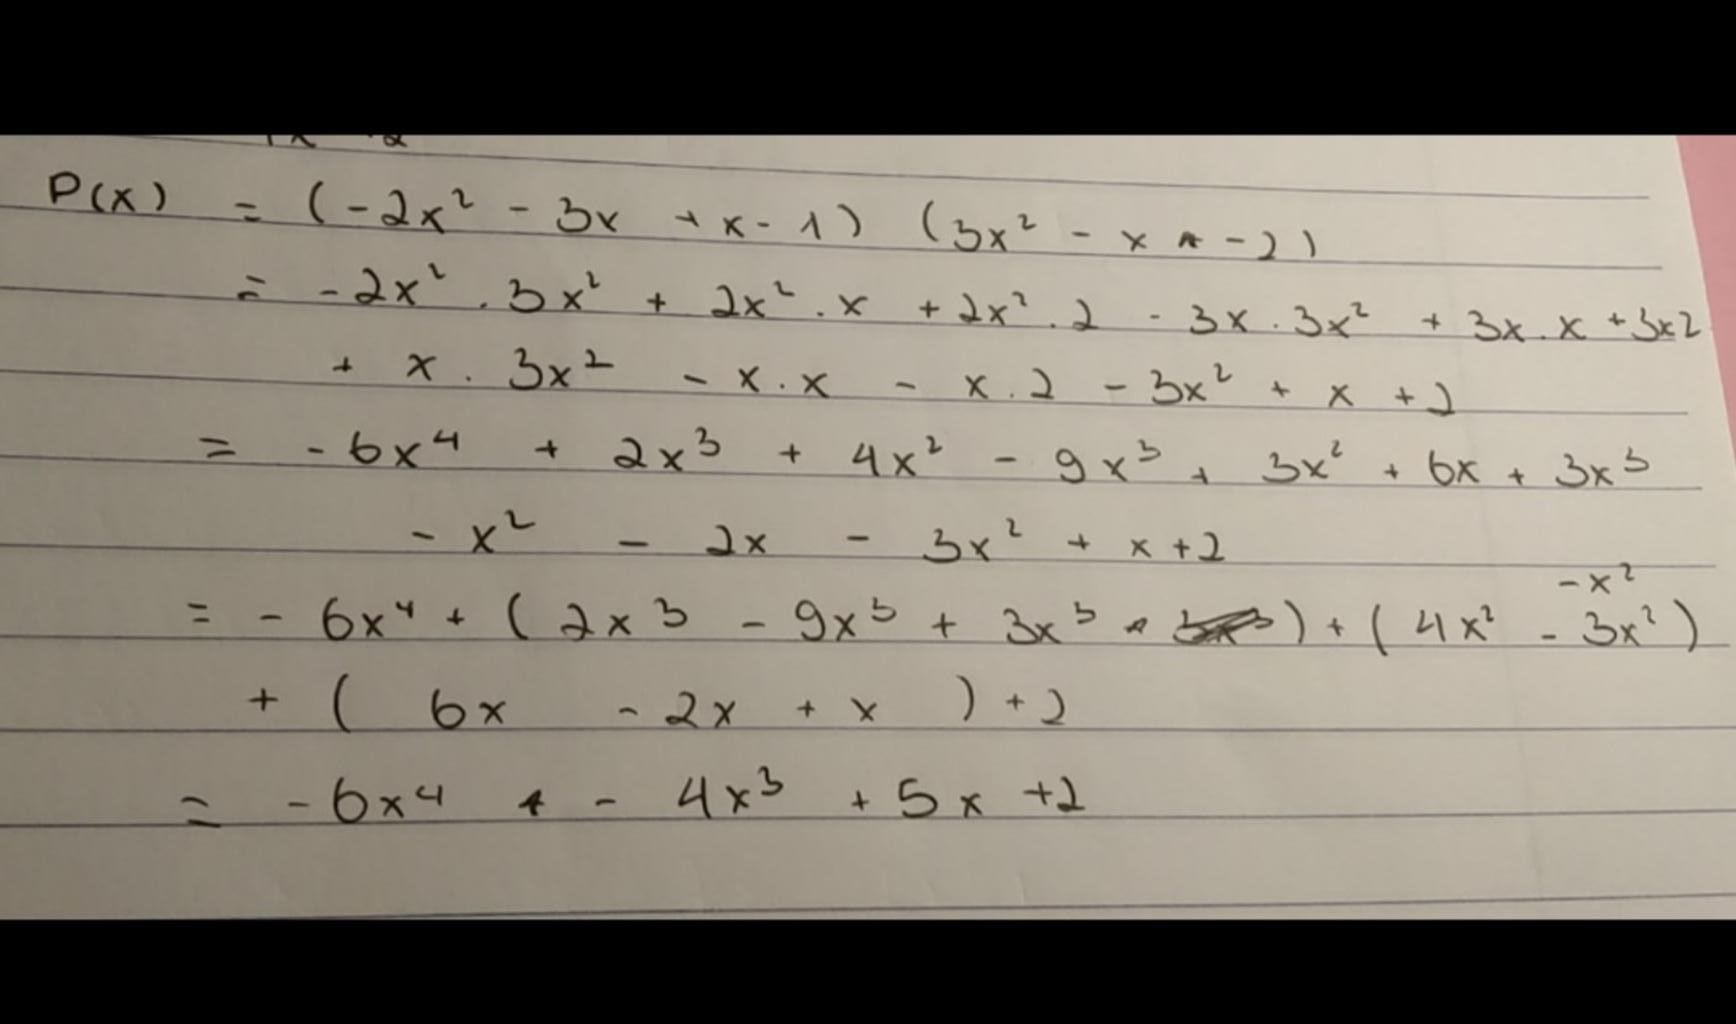 P(x) = (-2x² - 3x + x - 1) (3x² - x - 2)
= -2x² . 3x² + 2x² . x + 2x² . 2 - 3x . 3x² + 3x . x + 3x2
+ x . 3x² - x . x - x . 2 - 3x² + x + 2
= - 6x⁴ + 2x³ + 4x² - 9x³ + 3x² + 6x + 3x³
- x² - 2x - 3x² + x + 2
- x²
= - 6x⁴ + (2x³ - 9x³ + 3x³) + (4x² - 3x²)
+ ( 6x - 2x + x ) + 2
= - 6x⁴ - 4x³ + 5x + 2